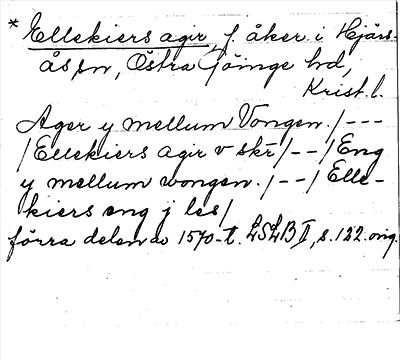 * Ellekiers agir, f. åker i Hjärs-
ås sn, Östra Göinge hd,
Krist. l.
Ager y mellum Vongen. /---
/Ellekiers agir v skr/--/Eng
y mellum wongen. /--/ Elle-
kiers eng j les/
förra delen av 1570-t. LSLB II, s. 122. orig.